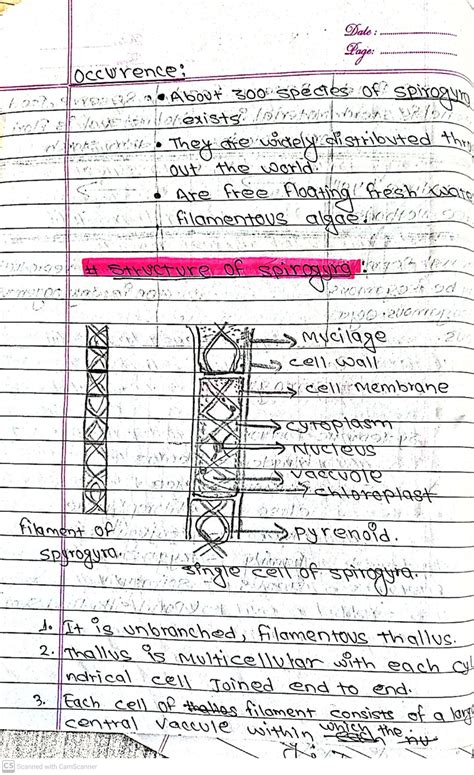 Date :
Page:
Occurence:
• About 300 species of spirogyra
exists.
• They are widely distributed thr
out the world.
• Are free floating fresh wate
filamentous algae.
# Structure of spirogyra :
Mucilage
cell wall
cell membrane
cytoplasm
Nucleus
vaccuole
chloroplast
pyrenoid.
filament of
spyrogyra.
single cell of spirogyra.
1. It is unbranched, filamentous thallus.
2. Thallus is multicellular with each cyl
ndrical cell joined end to end.
3. Each cell of thallos filament consists of a larg
central vaccule within which the
CS Scanned with CamScanner